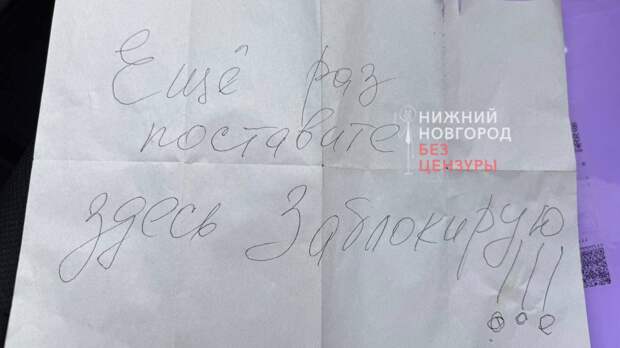 Ещё раз
поставите
здесь Заблокирую
!!!
НИЖНИЙ
НОВГОРОД
БЕЗ
ЦЕНЗУРЫ